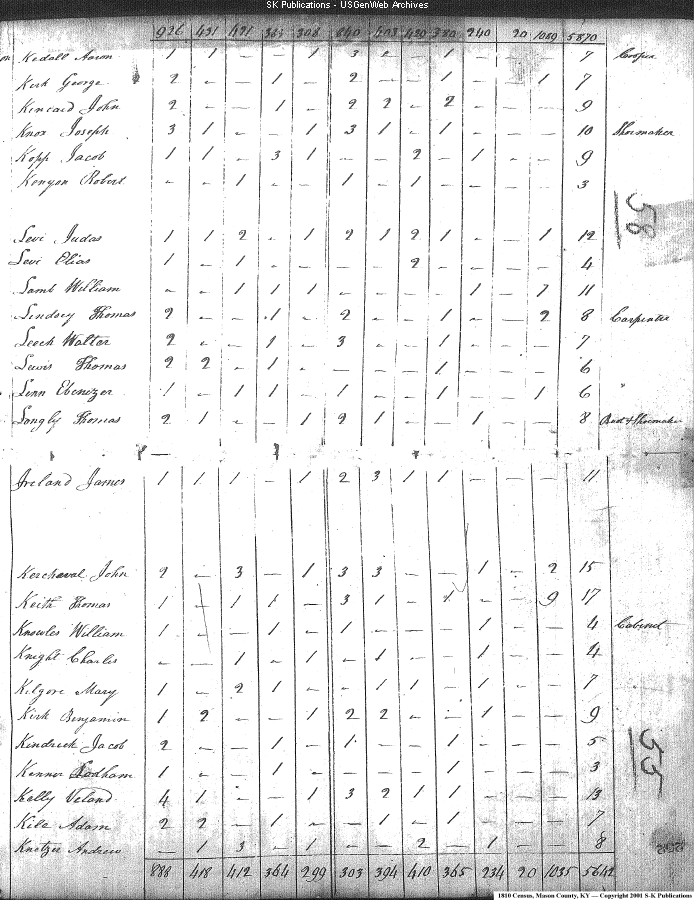 SK Publications - USGenWeb Archives
926 431 421 364 308 840 403 420 380 240 20 1089 5870
Kedall Aaron 1 1 - - 1 3 - - 1 - - - 7 Cooper
Kirk George 2 - - 1 - 2 - - 1 - - 1 7
Kincaid John 2 - - 1 - 2 2 - 2 - - - 9
Knox Joseph 3 1 - - 1 3 1 - 1 - - - 10 Shoemaker
Kopp Jacob 1 1 - 3 1 - - 2 - 1 - - 9
Kenyon Robert - - 1 - - 1 - 1 - - - - 3
58
Levi Judas 1 1 2 - 1 2 1 2 1 - - 1 12
Levi Elias 1 - 1 - - - - 2 - - - - 4
Lamb William - - 1 1 1 - - - - 1 - 7 11
Lindsey Thomas 2 - - 1 - 2 - - 1 - - 2 8 Carpenter
Leech Walter 2 - - 1 - 3 - - 1 - - - 7
Lewis Thomas 2 2 - 1 - - - - 1 - - - 6
Linn Ebenizer 1 - 1 1 - 1 - - 1 - - 1 6 "
Longly Thomas 2 1 - - 1 2 1 - - 1 - - 8 Boot & Shoemaker
Ireland James 1 1 1 - 1 2 3 1 1 - - - 11
Kercheval John 2 - 3 - 1 3 3 - - 1 - 2 15
Keith Thomas 1 - 1 1 - 3 1 - 1 - - 9 17
Knowles William 1 - - 1 - 1 - - - 1 - - 4 Cabinet
Knight Charles - - 1 - 1 - 1 - - 1 - - 4
Kilgore Mary 1 - 2 1 - - 1 1 - 1 - - 7
Kirk Benjamin 1 2 - - 1 2 2 - - 1 - - 9
Kindrick Jacob 2 - - 1 - 1 - - 1 - - - 5
55
Kenner Rodham 1 - - 1 - - - - 1 - - - 3
Kelly Veland 4 1 - - 1 3 2 1 1 - - - 13
Kile Adam 2 2 - 1 - - 1 - 1 - - - 7
Knetzer Andrew - 1 3 - 1 - - 2 - 1 - - 8
888 418 412 364 299 303 394 410 365 234 20 1035 5642
1810 Census, Mason County, KY — Copyright 2001 S-K Publications